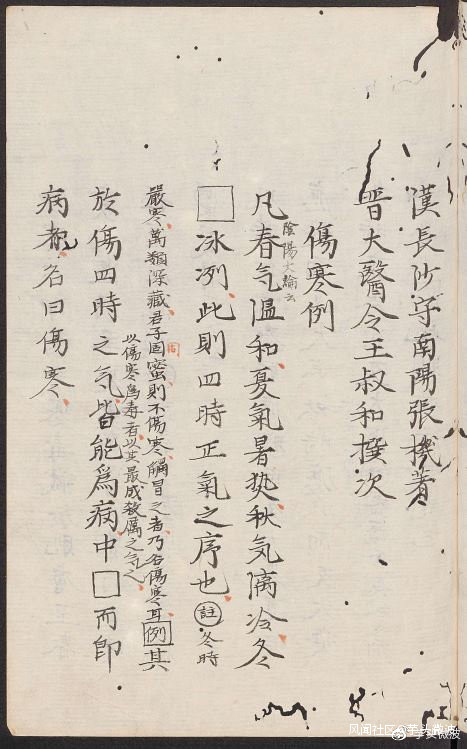 漢長沙守南陽張機著
晋大醫令王叔和撰次
傷寒例
陰陽大論云
凡春气温和夏氣暑热秋気凉冷冬
□冰冽此則四時正氣之序也註冬時
嚴寒萬類深藏君子固蜜則不傷寒觸冒之者乃名傷寒耳例其
固
於傷四時之气皆能為病中□而即
以傷寒為毒者以其最成殺厲之气也
病者名曰傷寒
风闻社区